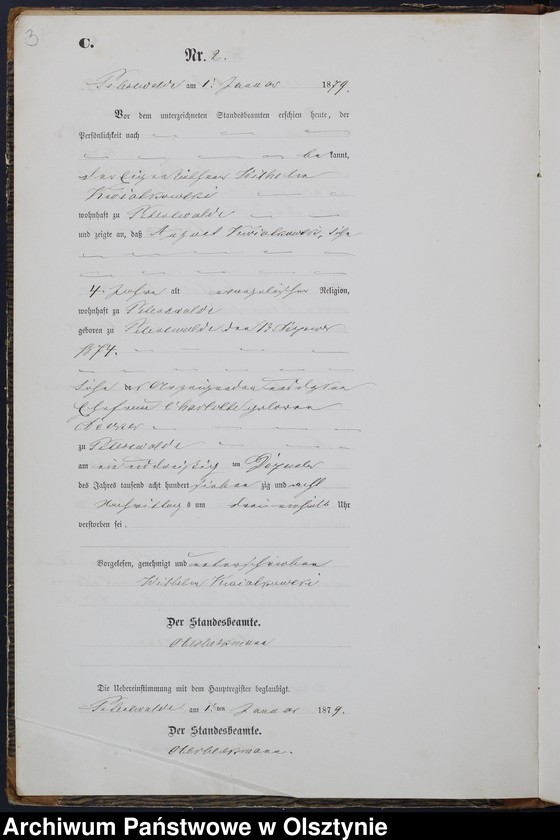 3
C.
Nr. 2.
am 1ten Januar 1879.
Vor dem unterzeichneten Standesbeamten erschien heute, der
Persönlichkeit nach
bekannt,
der Eigenkäthner Wilhelm
Kwiatkowski
wohnhaft zu
und zeigte an, daß August Kwiatkowski, Sohn
4 Jahre alt evangelischer Religion,
wohnhaft zu
geboren zu den 13 Dezember
1874.
Sohn des Anzeigenden und dessen
Ehefrau Charlotte geborene
zu
am ein und dreißig ten Dezember
des Jahres tausend acht hundert sieben zig und acht
Nachmittags um drei einhalb Uhr
verstorben sei.
Vorgelesen, genehmigt und unterschrieben
Wilhelm Kwiatkowski
Der Standesbeamte.
Die Uebereinstimmung mit dem Hauptregister beglaubigt.
am 1ten Januar 1879.
Der Standesbeamte.
Archiwum Państwowe w Olsztynie